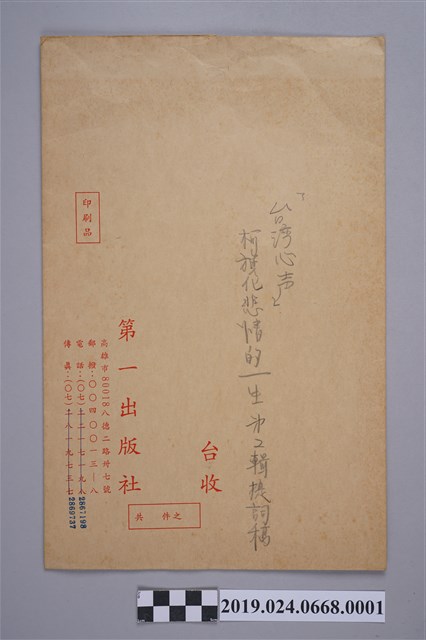 「台湾心声」
柯旗化悲情的一生第2輯捷詞稿
台收
印刷品
第一出版社
高雄市80018八德二路卅七號
郵撥：○○四○○一三—八
電話：(○七)二二一七一九八
2867198
傳真：(○七)二八一九七三七
2869737
共 件 之
2019.024.0668.0001